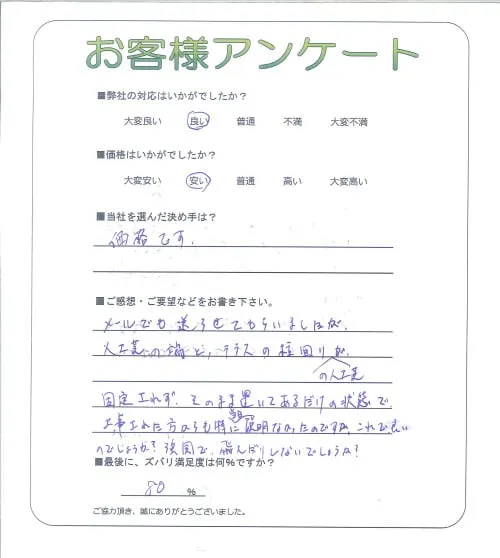 お客様アンケート
■弊社の対応はいかがでしたか？
大変良い 良い 普通 不満 大変不満
■価格はいかがでしたか？
大変安い 安い 普通 高い 大変高い
■当社を選んだ決め手は？
価格です．
■ご感想・ご要望などをお書き下さい。
メールでも送らせてもらいましたが、
人工芝の端と、テラスの柱回りが、
の人工芝
固定されず、そのまま置いてあるだけの状態で、
工事された方からも特に説明なかったのですが、これで良い
のでしょうか？強風で、飛んだりしないでしょうか？
■最後に、ズバリ満足度は何％ですか？
80 ％
ご協力頂き、誠にありがとうございました。